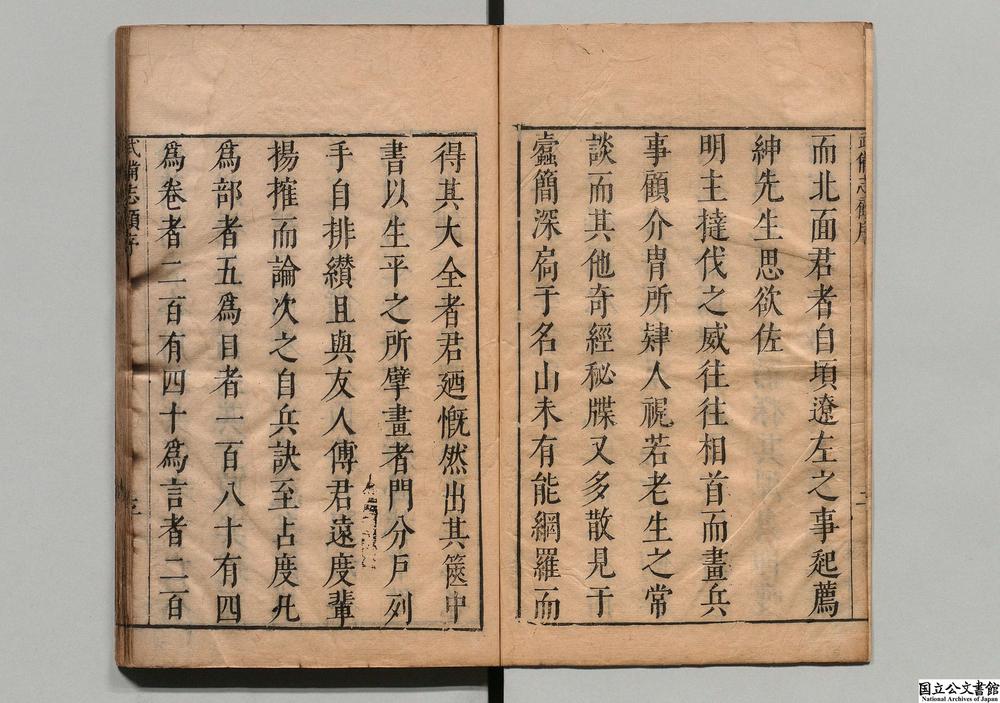 而北面君者自頃遼左之事起薦
紳先生思欲佐
明主撻伐之威往往相首而畫兵
事顧介冑所肄人視若老生之常
談而其他奇經秘牒又多散見于
蠹簡深扃于名山未有能網羅而
得其大全者君廼慨然出其篋中
書以生平之所擘畫者門分戶列
手自排纘且與友人傅君遠度輩
揚搉而論次之自兵訣至占度凡
爲部者五爲目者一百八十有四
爲卷者二百有四十爲言者二百
武備志顧序
国立公文書館
National Archives of Japan